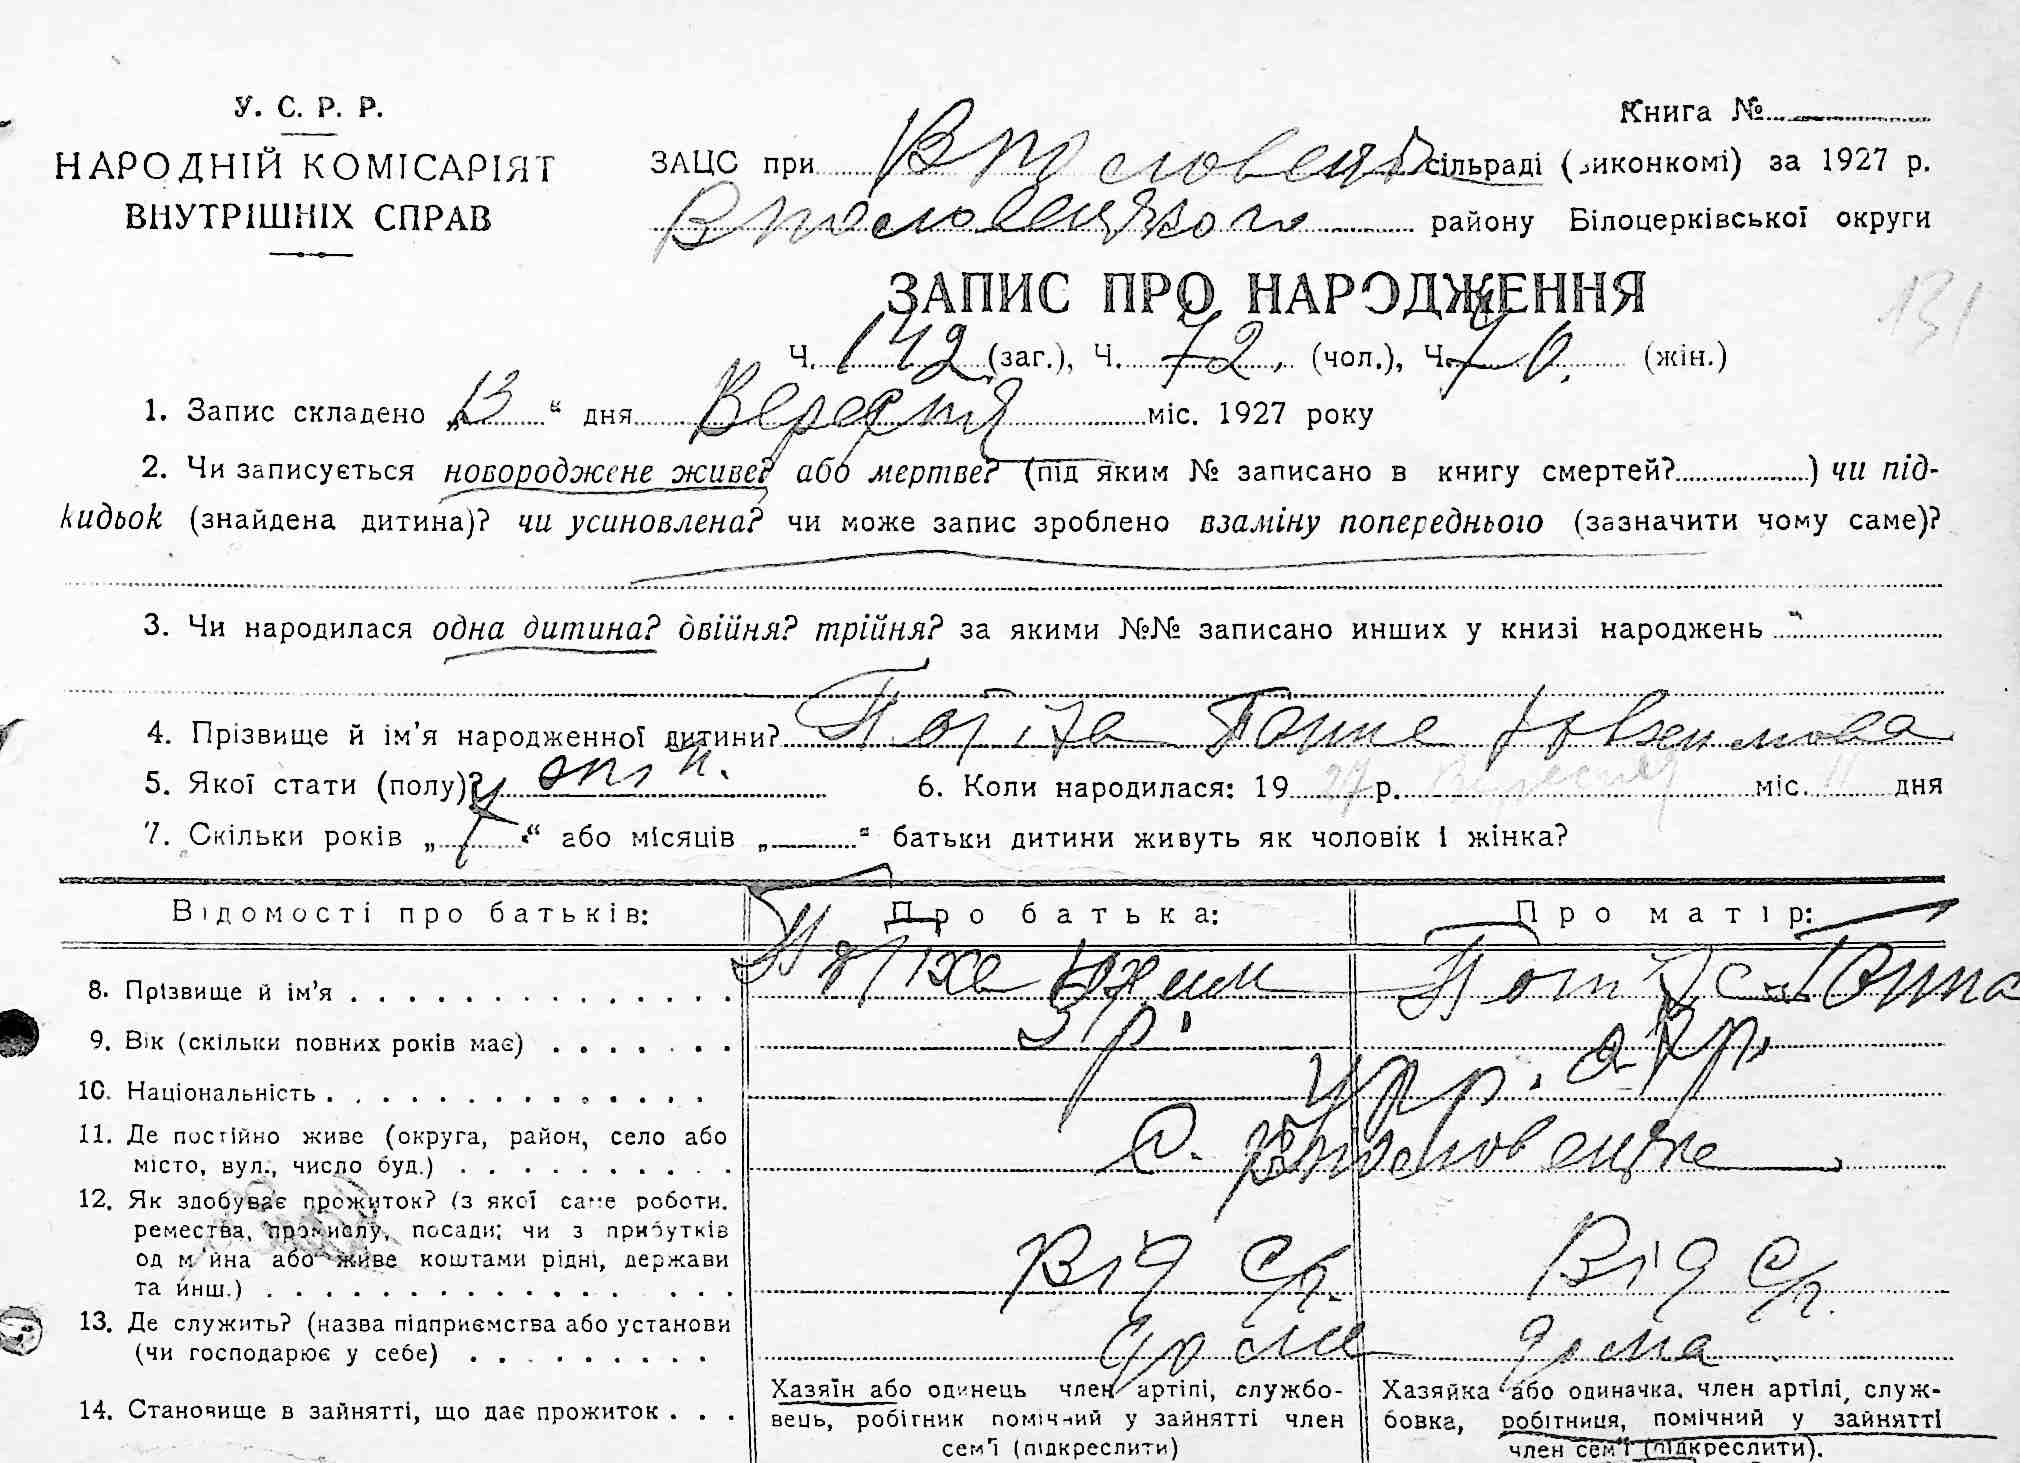 У. С. Р. Р.
НАРОДНІЙ КОМІСАРІЯТ
ВНУТРІШНІХ СПРАВ
Книга №
ЗАЦС при сільраді (виконкомі) за 1927 р.
району Білоцерківської округи
ЗАПИС ПРО НАРОДЖЕННЯ
131
Ч. 142 (заг.), Ч. 72 (чол.), Ч. 70. (жін.)
1. Запис складено „13“ дня Вересня міс. 1927 року
2. Чи записується новороджене живе? або мертве? (під яким № записано в книгу смертей?) чи під-
кидьок (знайдена дитина)? чи усиновлена? чи може запис зроблено взаміну попереднього (зазначити чому саме)?
3. Чи народилася одна дитина? двійня? трійня? за якими №№ записано инших у книзі народжень "
4. Прізвище й ім’я народженної дитини? Ганна
5. Якої стати (полу)? 6. Коли народилася: 19 27 р. Вересня міс. 11 дня
7. Скільки років „7“ або місяців „—“ батьки дитини живуть як чоловік і жінка?
Відомості про батьків: Про батька: Про матір:
8. Прізвище й ім’я Юхим Ганна
9. Вік (скільки повних років має) р.
10. Національність укр.
11. Де постійно живе (округа, район, село або
місто, вул., число буд.) с.
12. Як здобуває прожиток? (з якої саме роботи,
ремества, промислу, посади; чи з прибутків
од майна або живе коштами рідні, держави
та инш.) Від с/г. Від с/г.
13. Де служить? (назва підприємства або установи
(чи господарює у себе) дома дома
14. Становище в зайнятті, що дає прожиток
Хазяїн або одинець член артілі, службо-
вець, робітник помічний у зайнятті член
сем’ї (підкреслити)
Хазяйка або одиначка, член артілі, служ-
бовка, робітниця, помічний у зайнятті
член сем’ї (підкреслити).